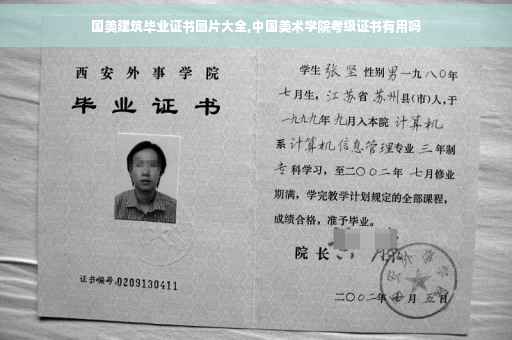 国美建筑毕业证书图片大全,中国美术学院考级证书有用吗
西安外事学院
毕业证书
证书编号:0209130411
学生 张坚 性别 男 一九八〇年
七月生，江苏省 苏州县(市)人，于
一九九九年 九月入本院 计算机
系 计算机信息管理专业 三 年制
专 科学习，至二〇〇二年 七月修业
期满，学完教学计划规定的全部课程，
成绩合格，准予毕业。
院长
二〇〇二年 月 五日